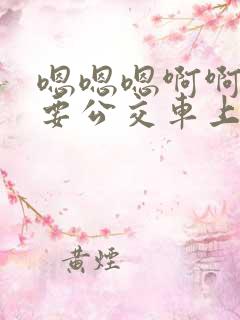 嗯嗯嗯啊啊
要公交車上
黄煙